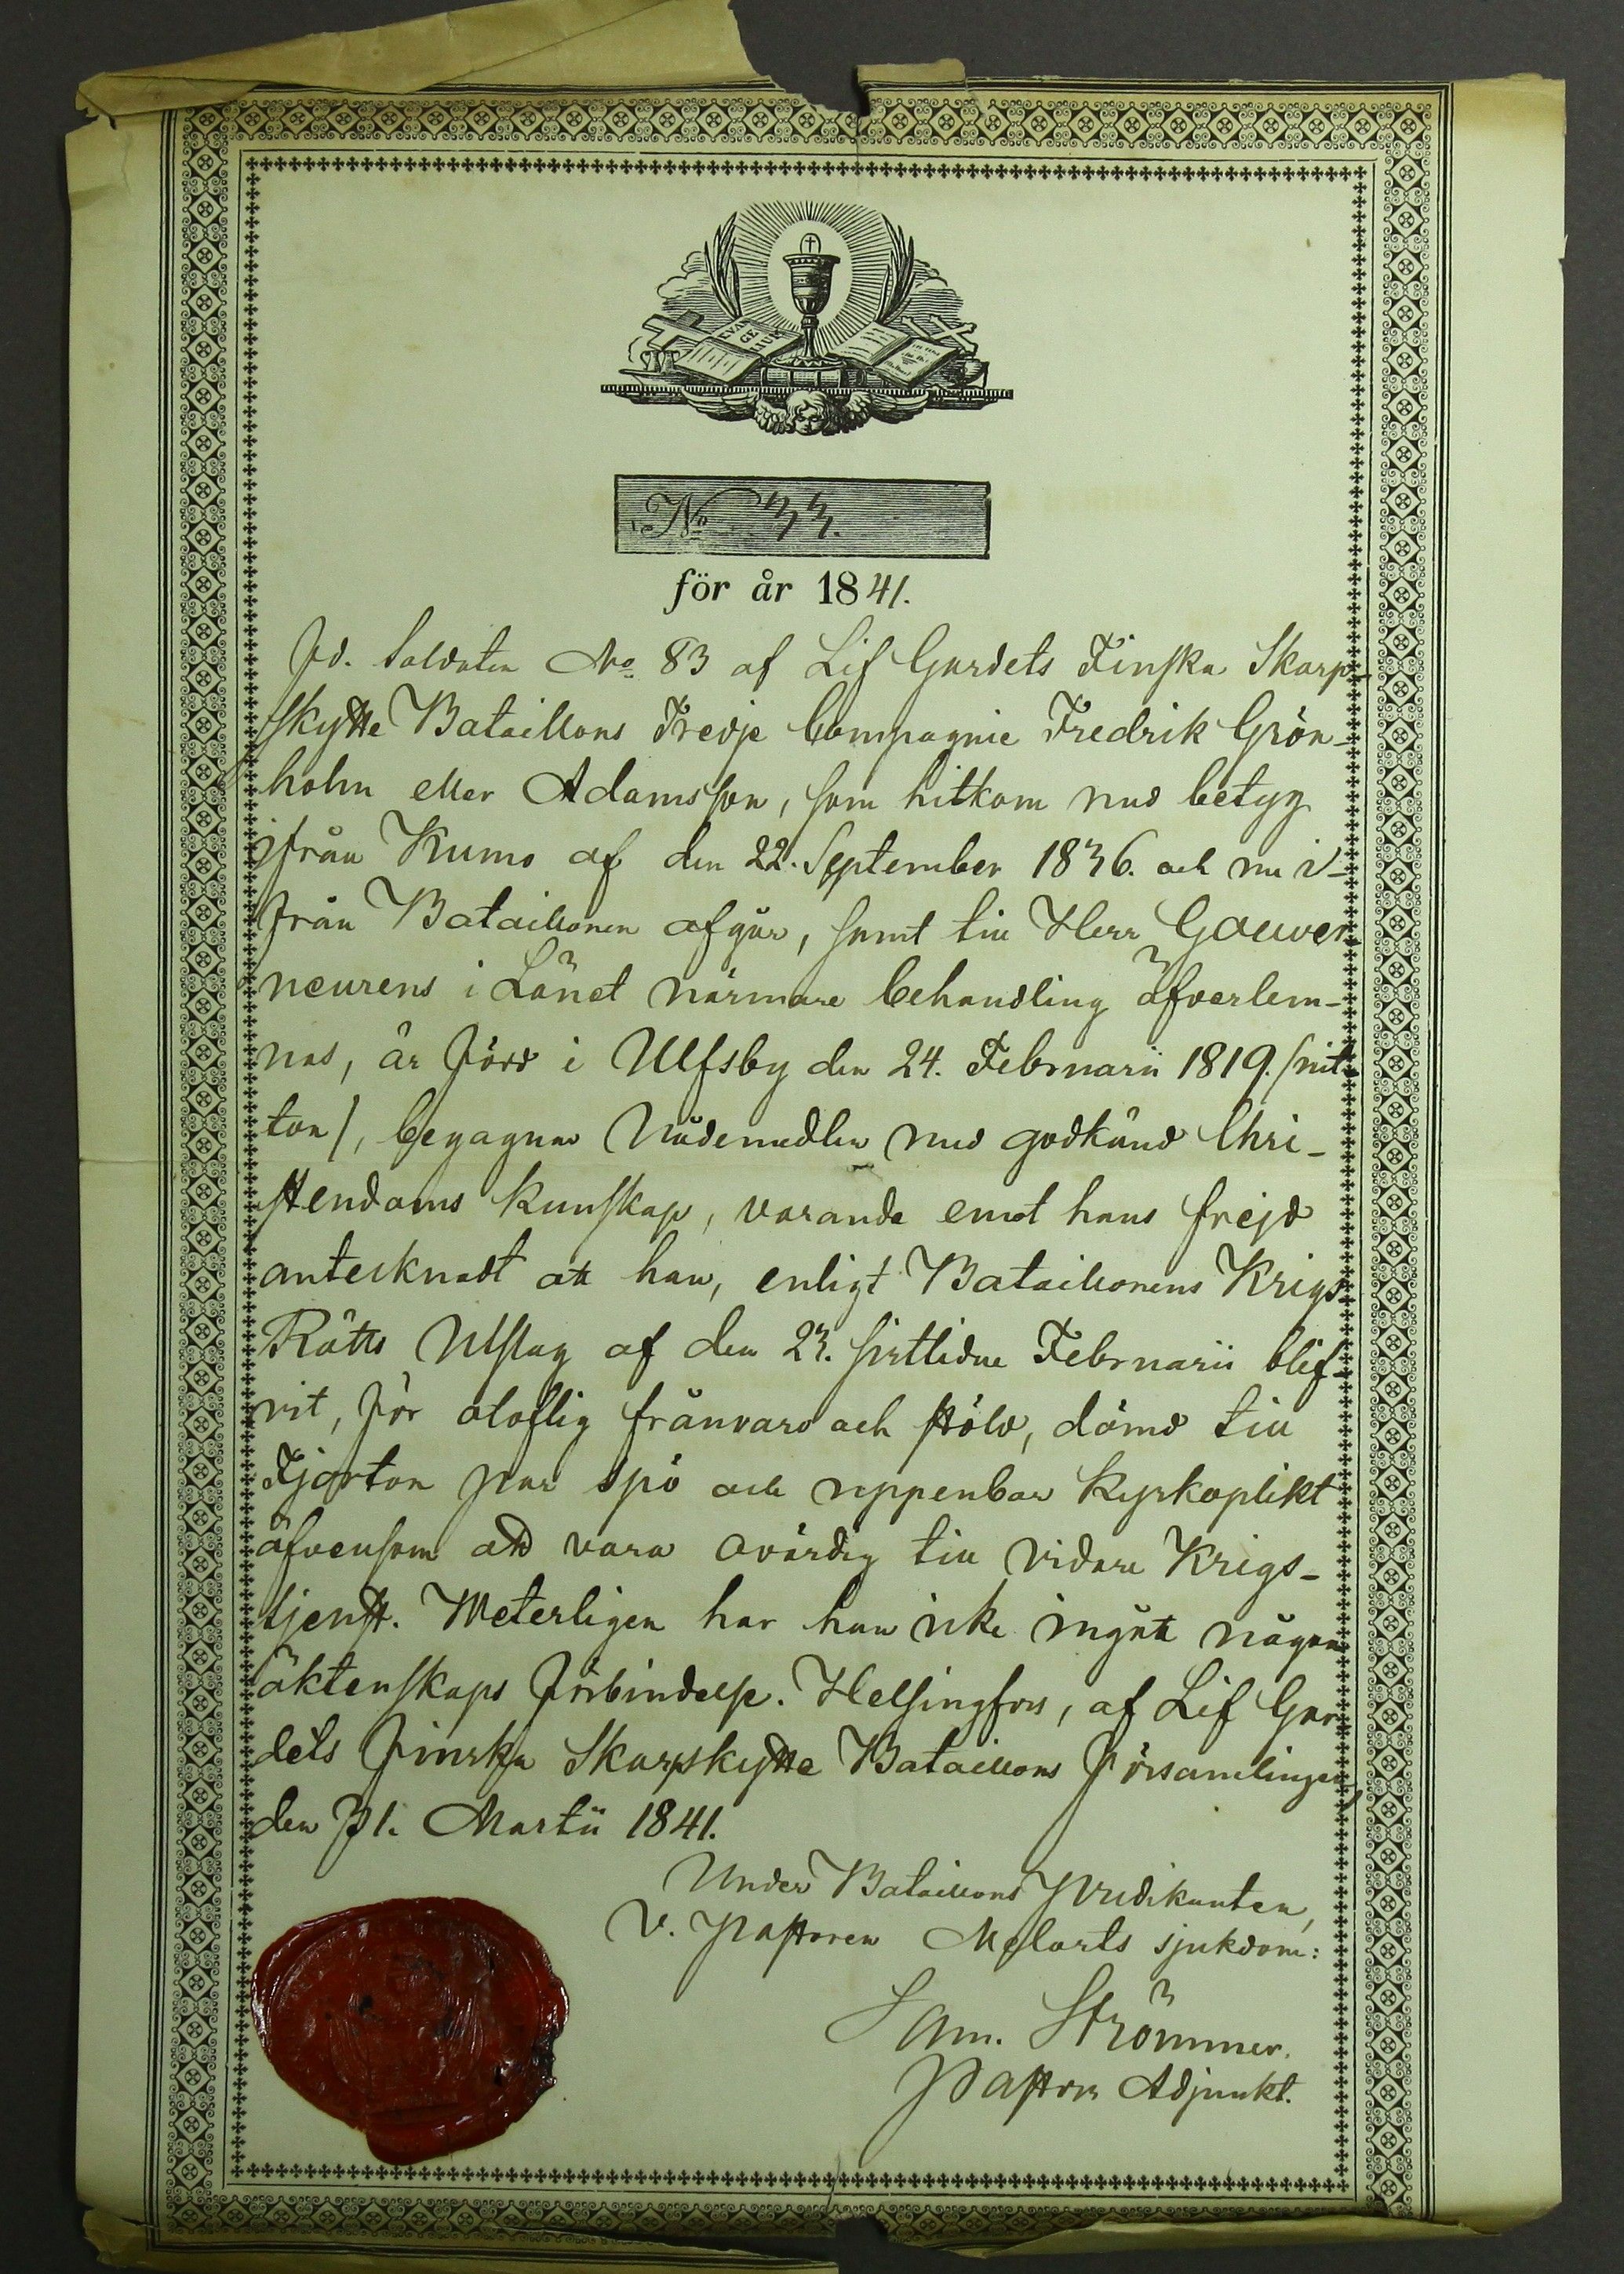 EVAN
GE
LIUM
No 33.
för år 1841.
Fd. Soldaten No 83 af Lif Gardets Finska Skarp-
skytte Bataillons Tredje Compagnie Fredrik Grön-
holm eller Adamsson, som hitkom med betyg
ifrån Kumo af den 22. September 1836. och nu i-
från Bataillonen afgår, samt till Herr Gouver-
neurens i Länet närmare behandling öfverlem-
nas, är född i Ulfsby den 24. Februarii 1819. /nit-
ton/, begagnar Nådemedlen med godkänd Chri-
stendoms kunskap, varande emot hans frejd
antecknadt att han, enligt Bataillonens Krigs-
Rätts Utslag af den 23. sistlidne Februarii blif-
vit, för oloflig frånvaro och stöld, dömd till
Fjorton par spö och uppenbar kyrkoplikt
äfvensom att vara ovärdig till vidare Krigs-
tjenst. Weterligen har han icke ingått någon
äktenskaps förbindelse. Helsingfors, af Lif Gar-
dets Finska Skarpskytte Bataillons Församlingen,
den 31. Martii 1841.
Under Bataillons Predikanten,
V. Pastoren Melarts sjukdom:
Sam. Strömmer.
Pastors Adjunkt.